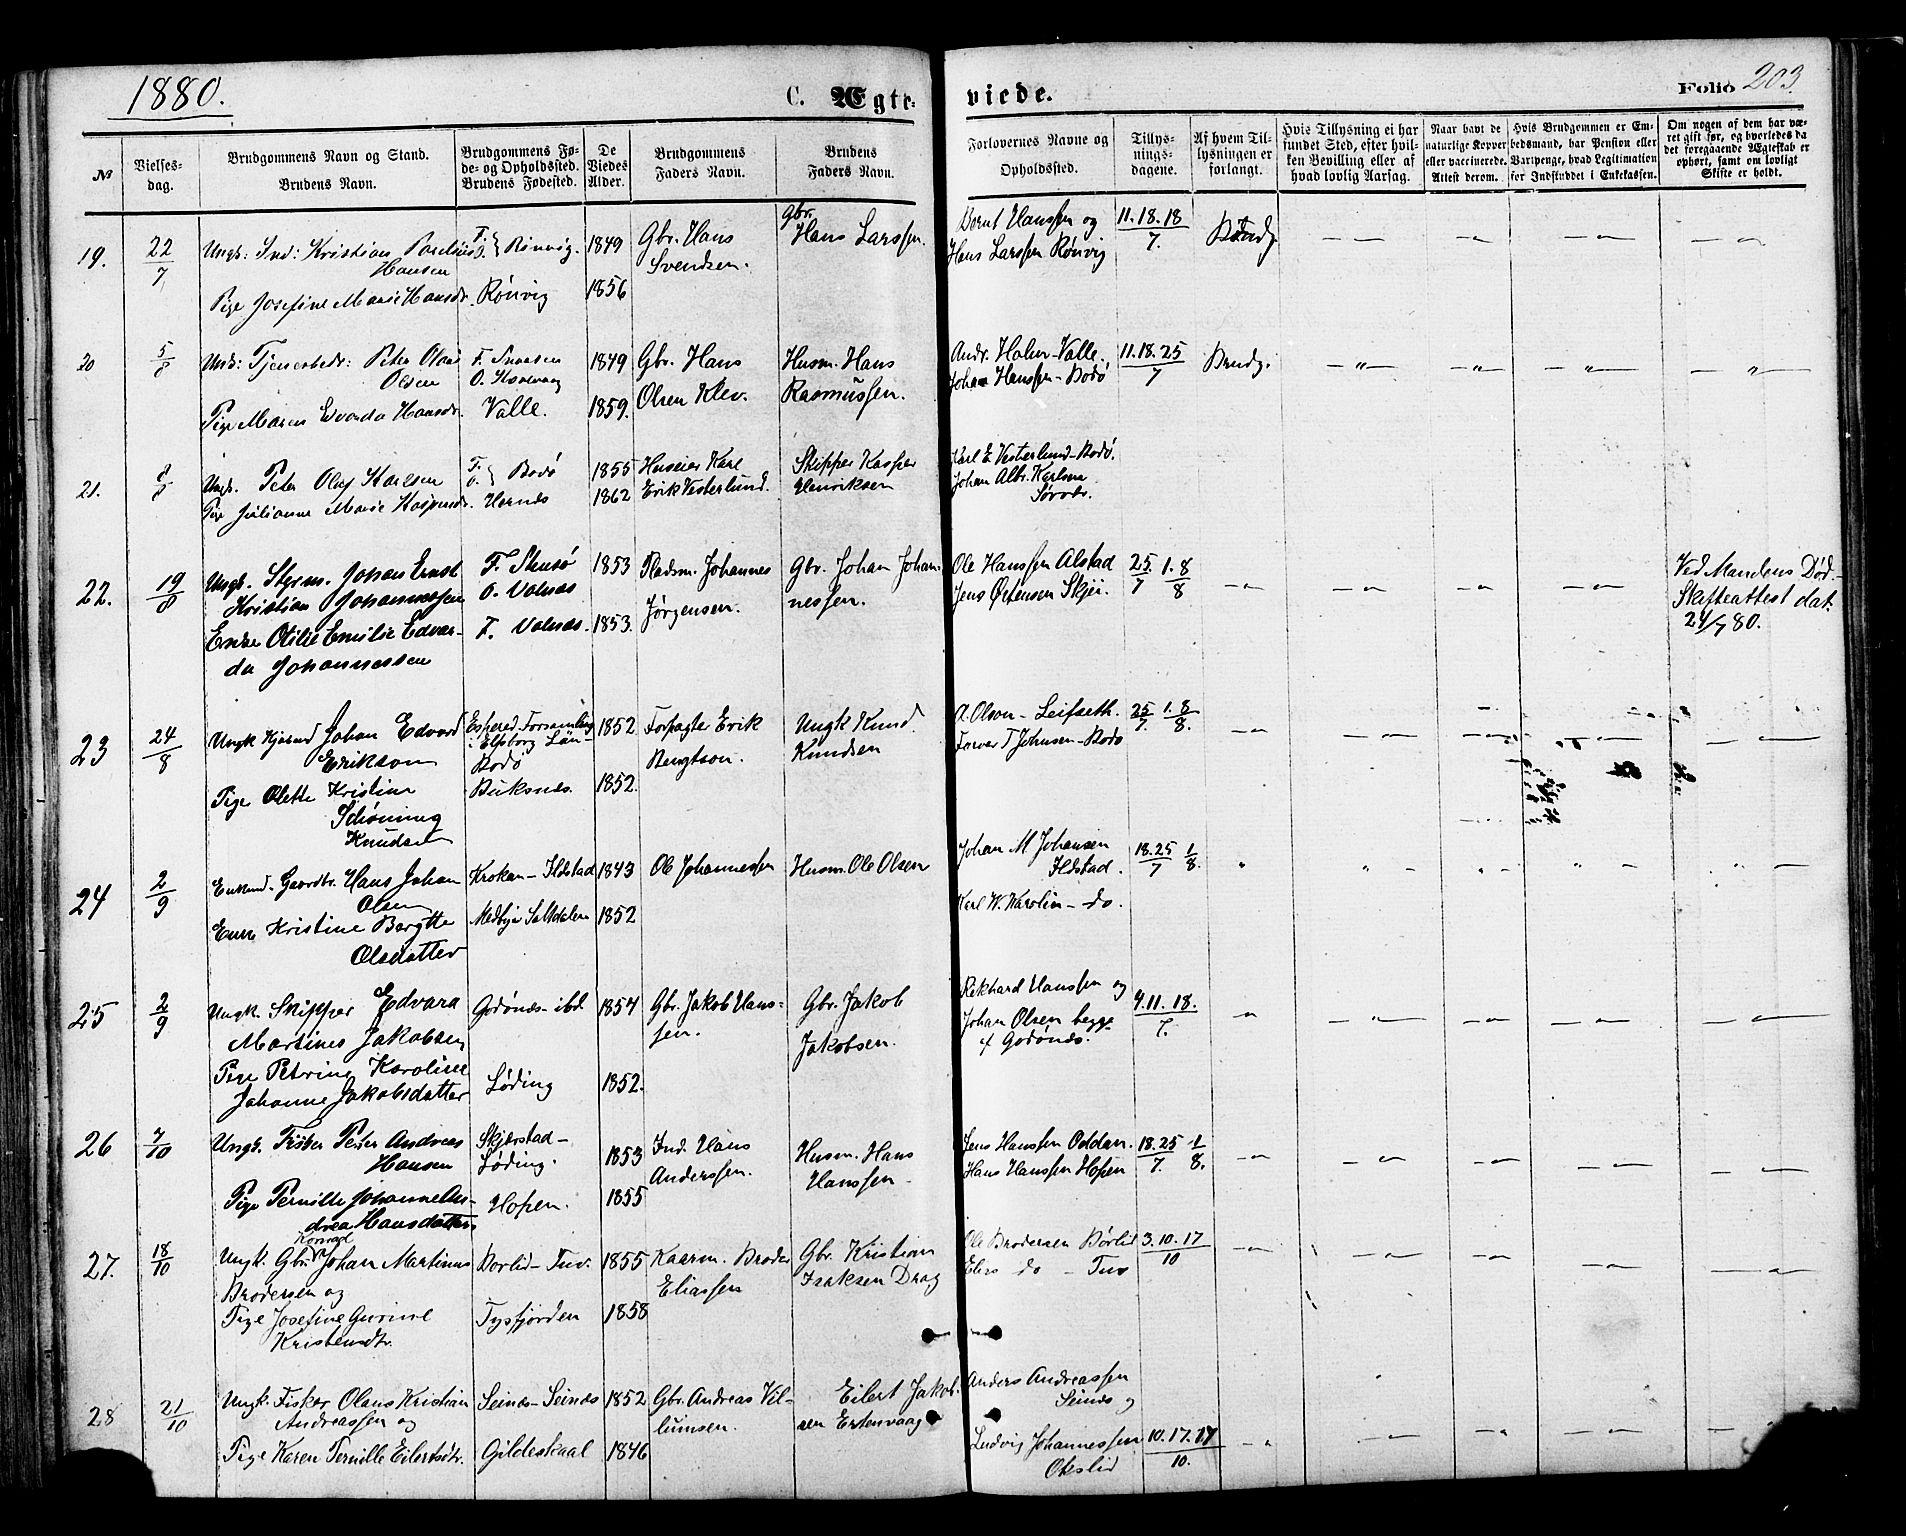 1880.
C. Ægte-
viede.
Folio 203.
№
Vielses-
dag.
Brudgommens Navn og Stand.
Brudens Navn.
Brudgommens Fø-
de- og Opholdssted.
Brudens Fødested.
De
Viedes
Alder.
Brudgommens
Faders Navn.
Brudens
Faders Navn.
Forlovernes Navne og
Opholdssted.
Tillys-
nings-
dagene.
Af hvem Til-
lysningen er
forlangt.
Hvis Tillysning ei har
fundet Sted, efter hvil-
ken Bevilling eller af
hvad lovlig Aarsag.
Naar havt de
naturlige Kopper
eller vaccinerede.
Attest derom.
Hvis Brudgommen er Em-
bedsmand, har Pension eller
Vartpenge, hvad Legitimation
for Indskuddet i Enkekassen.
Om nogen af dem har væ-
ret gift før, og hvorledes da
det foregaaende Ægteskab er
ophørt, samt om lovligt
Skifte er holdt.
19.
22/7
Ungk: Ind: Kristian
Hansen
Pige Josefine Marie Hansdr.
F. O. } Rønvig.
Rønvig
1849
1856
Gbr. Hans
Svendsen.
Gbr.
Hans Larssen.
Bernt Hanssen og
Hans Larssen Rønvig
11. 18. 18/7.
Brudg.
20
5/8
Ungk: Tjenerbedr: Peter Olaus
Olsen
Pige Maren Evarda Hansdr.
F. Snaasen
O.
Valle.
1849
1859.
Gbr. Hans
Olsen Klev.
Husm. Hans
Rasmussen.
Andr. Holm-Valle.
Johan Hanssen-Bodø
11. 18. 25/7
Brudg.
21.
8/8
Ungk. Peter Oluf Karlsen
Pige Julianne Marie Kaspersdr.
F. O. } Bodø
Hernes
1855
1862
Huseier Karl
Erik Vesterlund.
Skipper Kasper
Henriksen
Karl E. Vesterlund-Bodø.
Johan Albr. Karlsen
22.
19/8
Ungk. Styrm. Johan Ernst
Kristian Johannessen
Enke Otilie Emilie Edvar-
da Johannessen
F. Stensø
O. Valnæs
F. Valnæs.
1853
1853.
Pladsm. Johannes
Jørgensen.
Gbr. Johan Johan-
nessen.
Ole Hanssen Alstad
Jens Østensen Skjei.
25/7 1. 8/8
Ved Mandens Død-
Skifteattest dat.
24/7 80.
23
24/8
Ungk Johan Edvard
Erikson
Pige Olette Kristine
Schøning
Knudsen
Espered Forsamling
i Elfsborg Län-
Bodø
Buksnes.
1852
1852.
Forpagter Erik
Bengtson.
Ungk Knud
Knudsen
A. Olson - Leifseth.
Farver T Johnsen-Bodø
25/7 1. 8/8.
24
2/9
Enkem. Gaardbr. Hans Johan
Olsen
Enke Kristine Bergitte
Olsdatter
Krokan - Ildstad
Medbye Saltdalen
1843
1852
Ole Johannessen
Husm. Ole Olsen
Johan M Johansen
Ildstad.
Karl W. Karolin - do.
18. 25/7 1/8.
25
2/9
Ungk. Skipper Edvard
Martines Jakobsen
Pige Petrine Karoline
Johanne Jakobsdatter
Godønes ibd.
Løding
1854
1852.
Gbr. Jakob Hans-
sen.
Gbr. Jakob
Jakobsen.
Rikhard Hanssen og
Johan Olsen begge
af Godønes.
4. 11. 18./7.
26
7/10
Ungk. Fisker Peter Andreas
Hansen
Pige Pernille Johanne An-
drea Hansdatter
Skjerstad-
Løding.
Hopen.
1853
1855
Ind. Hans
Anderssen.
Husm. Hans
Hanssen
Jens Hanssen Oddan.
Hans Hanssen Hopen
18. 25/7. 1/8.
27.
18/10
Konrad
Ungk. Gbr. Johan Martinus
Brodersen og
Pige Josefine Gurine
Kristensdtr.
Børlid - Tuv.
Tysfjorden
1855
1858
Kaarm. Broder
Eliassen
Gbr. Kristian
Isaksen Drag
Ole Brodersen Børlid
Elers do - Tuv
3. 10. 17/10
28
21/10
Ungk. Fisker Olaus Kristian
Andreassen og
Pige Karen Pernille Eilertsdtr.
Seines - Seines
Gildeskaal
1852
1846
Gbr. Andreas Vil-
lumsen.
Eilert Jakob-
sen Estenvaag
Anders Andreassen
Seines og
Ludvig Johannessen
Okslid
10. 17. 17/10.